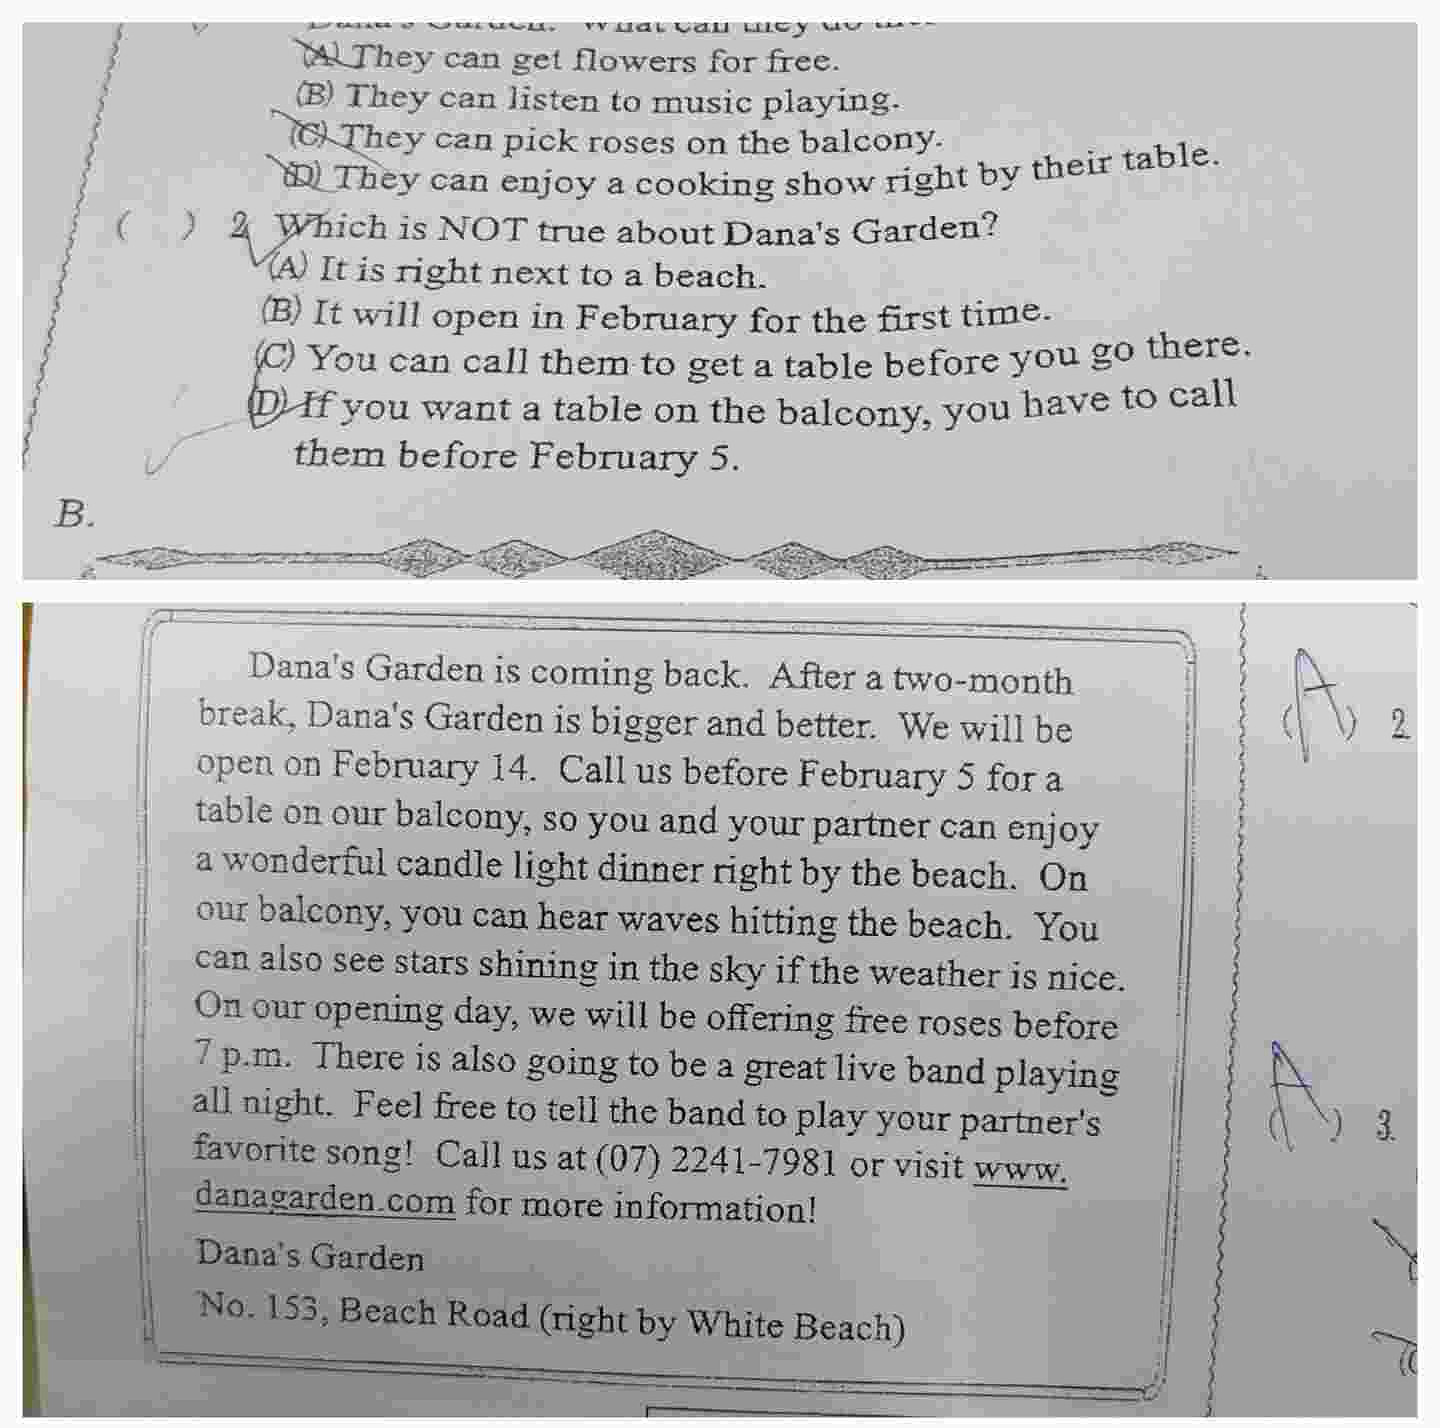 Dana's Garden. What can they do
(A) They can get flowers for free.
(B) They can listen to music playing.
(C) They can pick roses on the balcony.
(D) They can enjoy a cooking show right by their table.
( ) 2. Which is NOT true about Dana's Garden?
(A) It is right next to a beach.
(B) It will open in February for the first time.
(C) You can call them to get a table before you go there.
(D) If you want a table on the balcony, you have to call
them before February 5.
B.
Dana's Garden is coming back. After a two-month
break, Dana's Garden is bigger and better. We will be
open on February 14. Call us before February 5 for a
table on our balcony, so you and your partner can enjoy
a wonderful candle light dinner right by the beach. On
our balcony, you can hear waves hitting the beach. You
can also see stars shining in the sky if the weather is nice.
On our opening day, we will be offering free roses before
7 p.m. There is also going to be a great live band playing
all night. Feel free to tell the band to play your partner's
favorite song! Call us at (07) 2241-7981 or visit www.
danagarden.com for more information!
Dana's Garden
No. 153, Beach Road (right by White Beach)
(A) 2.
(A) 3.